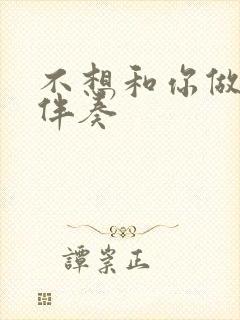 不想和你做
伴奏
譚崇正